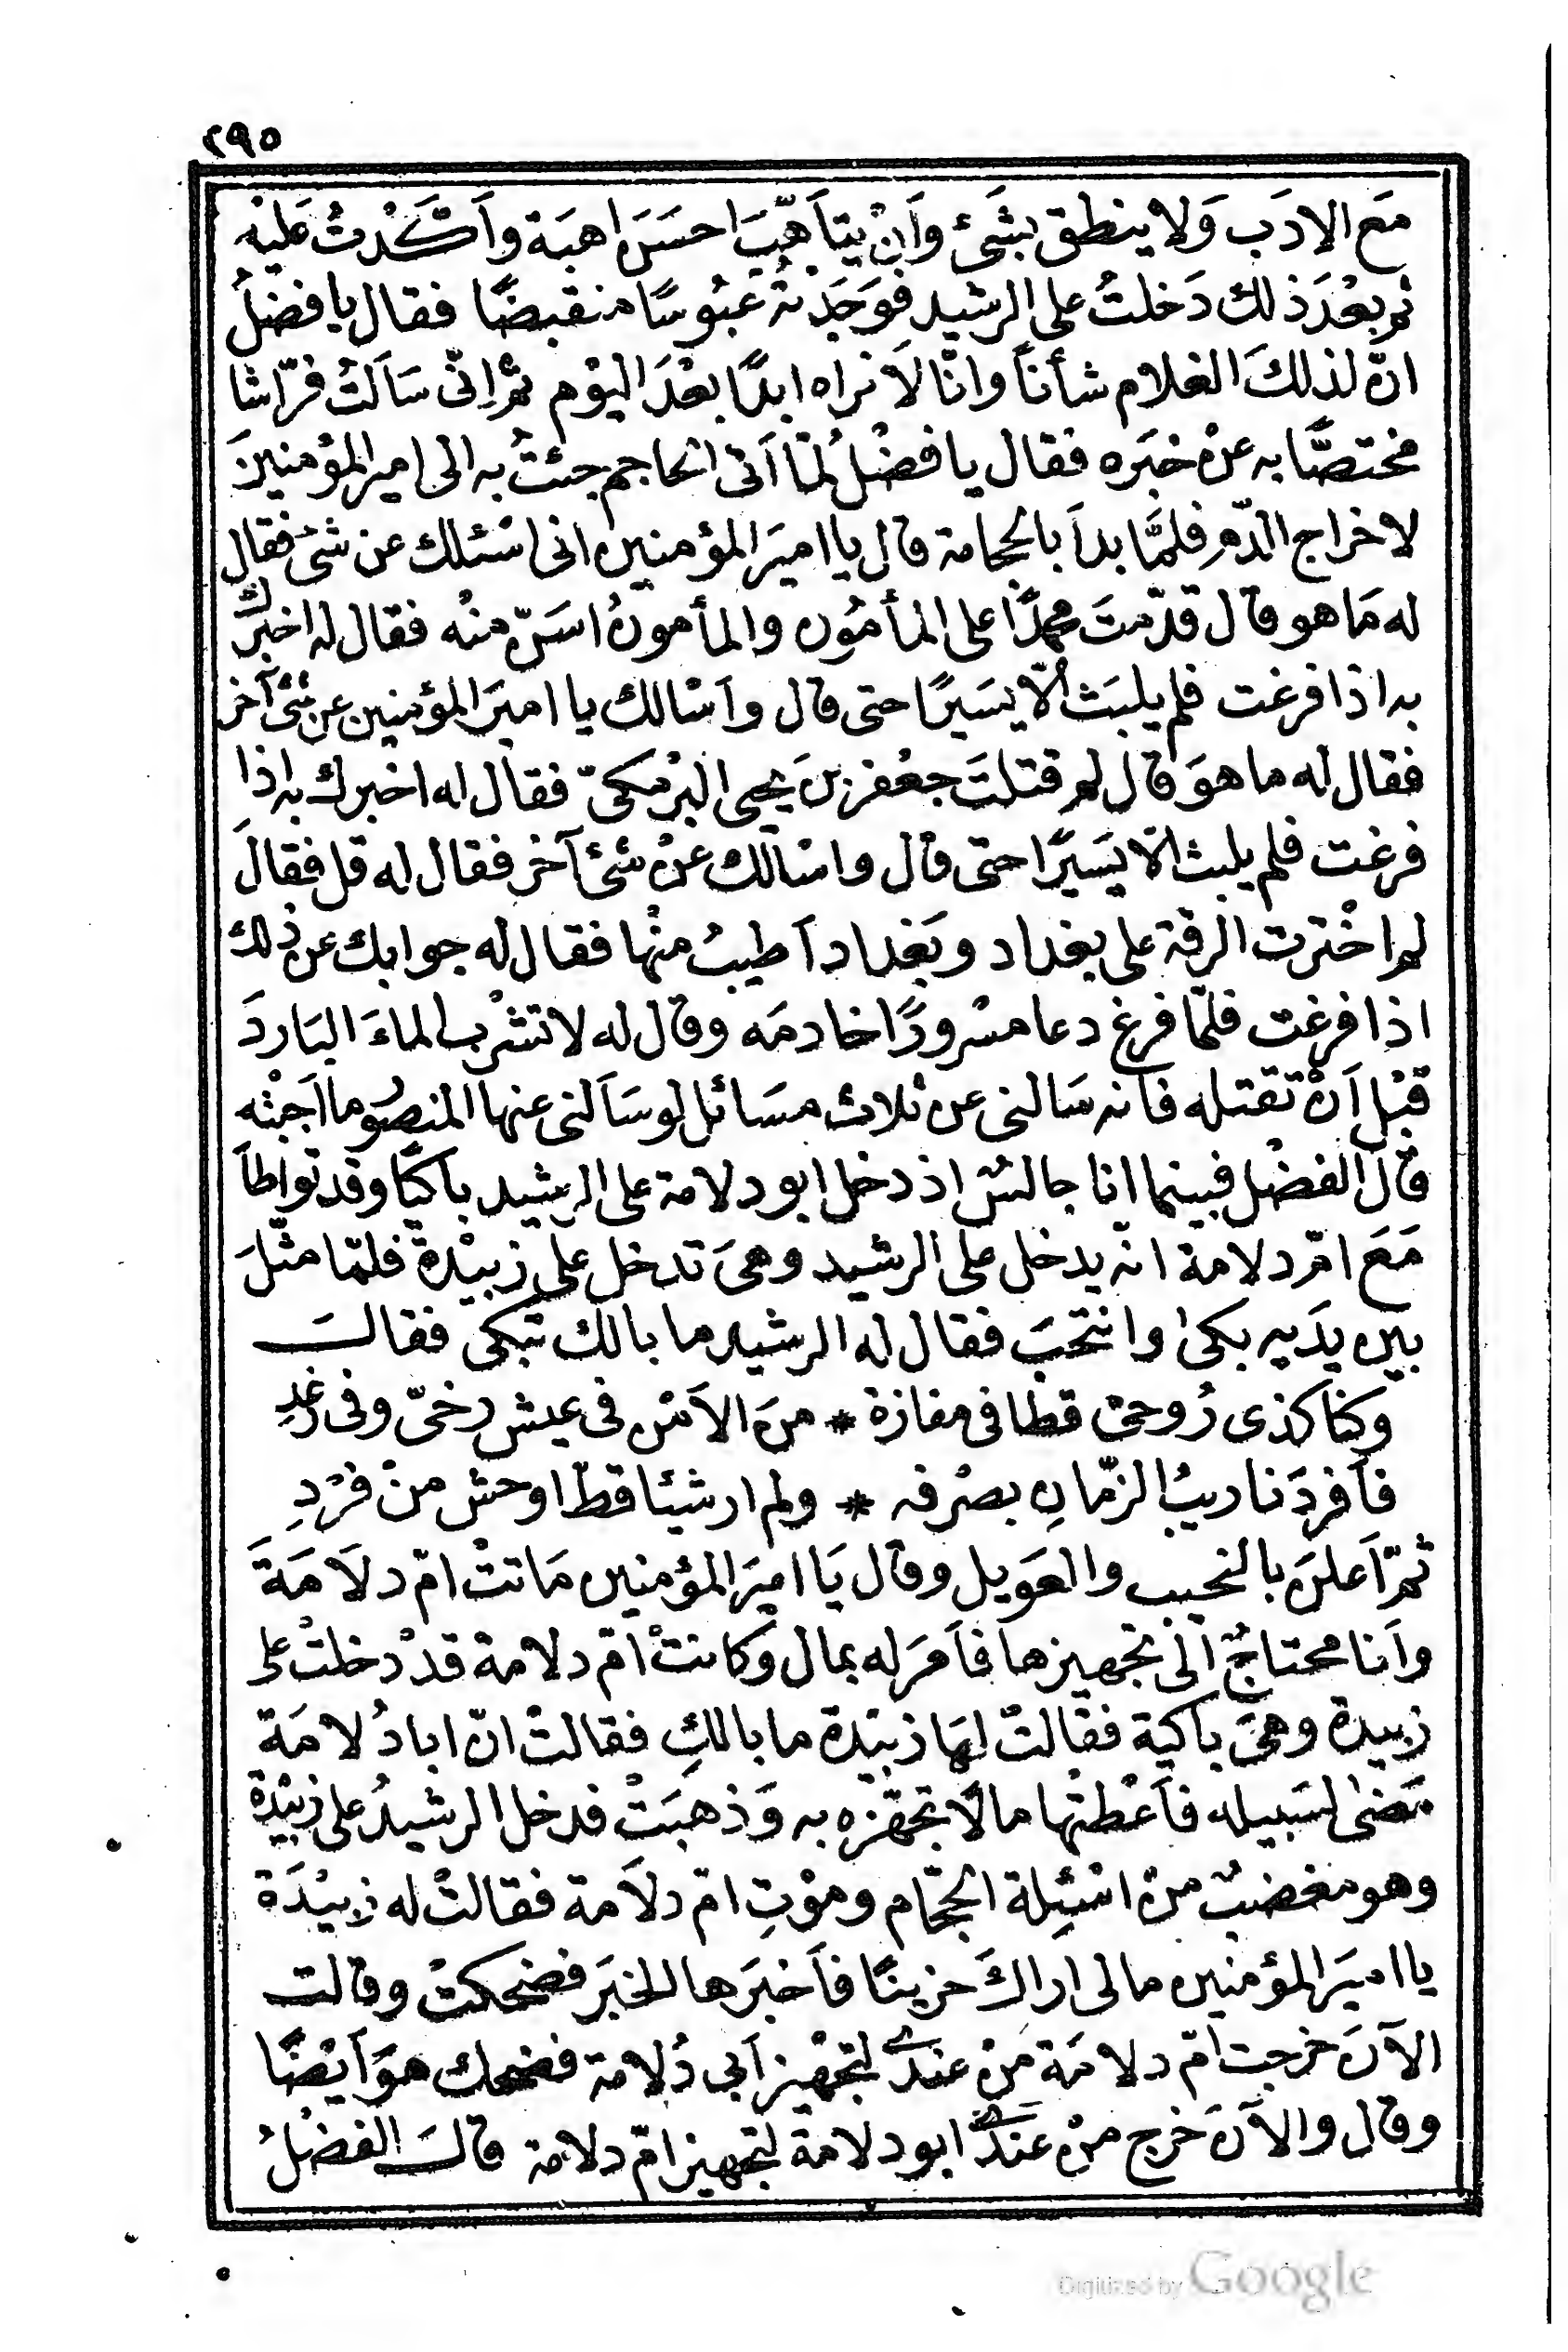 ٢٩٥
مَع الادَب وَلا ينطق بشَئ وَاَنْ يتأهّبَ احسَن اهبَة واَكّدْتُ عليْه
ثم بعْدَ ذلك دَخلتُ على الرشيد فوَجَدْتهُ عَبُوسًا منقبضًا فقال يا فضلُ
انّ لذلكَ الغلام شأناً وانّا لاَ نراه ابدًا بعْدَ اليَوْم ثمّ اِنّى سَاَلتُ فرّاشا
مختصًّا به عنْ خبَره فقال يا فضْلُ لمّا اَتى الحاجم جئتُ به الى امير المؤمنينَ
لاخراج الدّمِ فلمَّا بداَ بالحجامة قال يا اميَر المؤمنين انى اسْئلك عن شئ فقال
له مَا هو قال قدّمتَ محمدًا على المأمُون والمأمونُ اسَنّ منْه فقال له اخبرك
به اذا فرغت فلم يلبَث الاّ يسَيرًا حتى قال واَسْالك يا اميَر المؤمنين عن شئ آخر
فقال له ما هوَ قال لم قتلتَ جعْفر بن يحيى البرْمكىّ فقال له اخبرك به اذا
فرغت فلم يلبث الاّ يَسيرًا حتى قال واسْالك عنْ شئ آخر فقال له قل فقالَ
لم اخْترت الرقة على بغداد وبَغداد اَطيبُ منْها فقال له جوابك عن ذلك
اذا فرغت فلمّا فرغ دعا مسْرورًا خادمَه وقال له لا تشْرب الماءَ البَاردَ
قبْل اَنْ تقتله فانه سَالنى عن ثلاث مسَائل لو سَاَلنى عنها المنصُور ما اَجبْته
قالَ الفضْل فبينما انا جالسٌ اذ دخل ابو دلامة على الرشيد باكيًا وقد تواطاَ
مَعَ امّ دلامة انه يدخل على الرشيد وهىَ تدخل على زبيْدة فلمّا مثّلَ
بين يدَيه بكىٰ وانتحَبَ فقال له الرشيد ما بالك تبكى فقالَ
وكنا كذى زَوجىْ قطا فى مفازة * منَ الاَمْن فى عيش رخىّ وفى رَغدِ
فاَفردَنا ريبُ الزّمانِ بصرْفه * ولم ار شيئا قطّ اوحش منْ فرْدِ
ثمّ اَعلنَ بالنحيب والعَويل وقال يَا اميَر المؤمنين مَاتتْ امّ دلاَمَةَ
واَنا محتاجٌ الى تجهيزها فاَمَر له بمال وَكانتْ امّ دلامة قدْ دخلتْ على
زبيدة وهىَ باكية فقالتْ لهَا زبيْدة ما بالكِ فقالتْ انّ ابا دُلامَة
مَضىٰ لسَبيله فاَعْطتْها مالًا تجهّزه به وَذهبَتْ فدخل الرشيدُ على زبيْدة
وهو مغضبٌ منْ اسْئِلة الحجّام وموْتِ امّ دلاَمة فقالتْ له زبيْدَة
يا اميَر المؤمنين مالى اراكَ حزينًا فاَخبَرها الخبَر فضحكتْ وقالت
الآنَ خرجت امّ دلامَة مِنْ عندى لتجْهيز اَبى دُلامة فضحك هوَ اَيضًا
وقال والآنَ خرج منْ عندى ابو دلامة لتجهيز امّ دلامة قالَ الفضْلُ
Digitized by Google